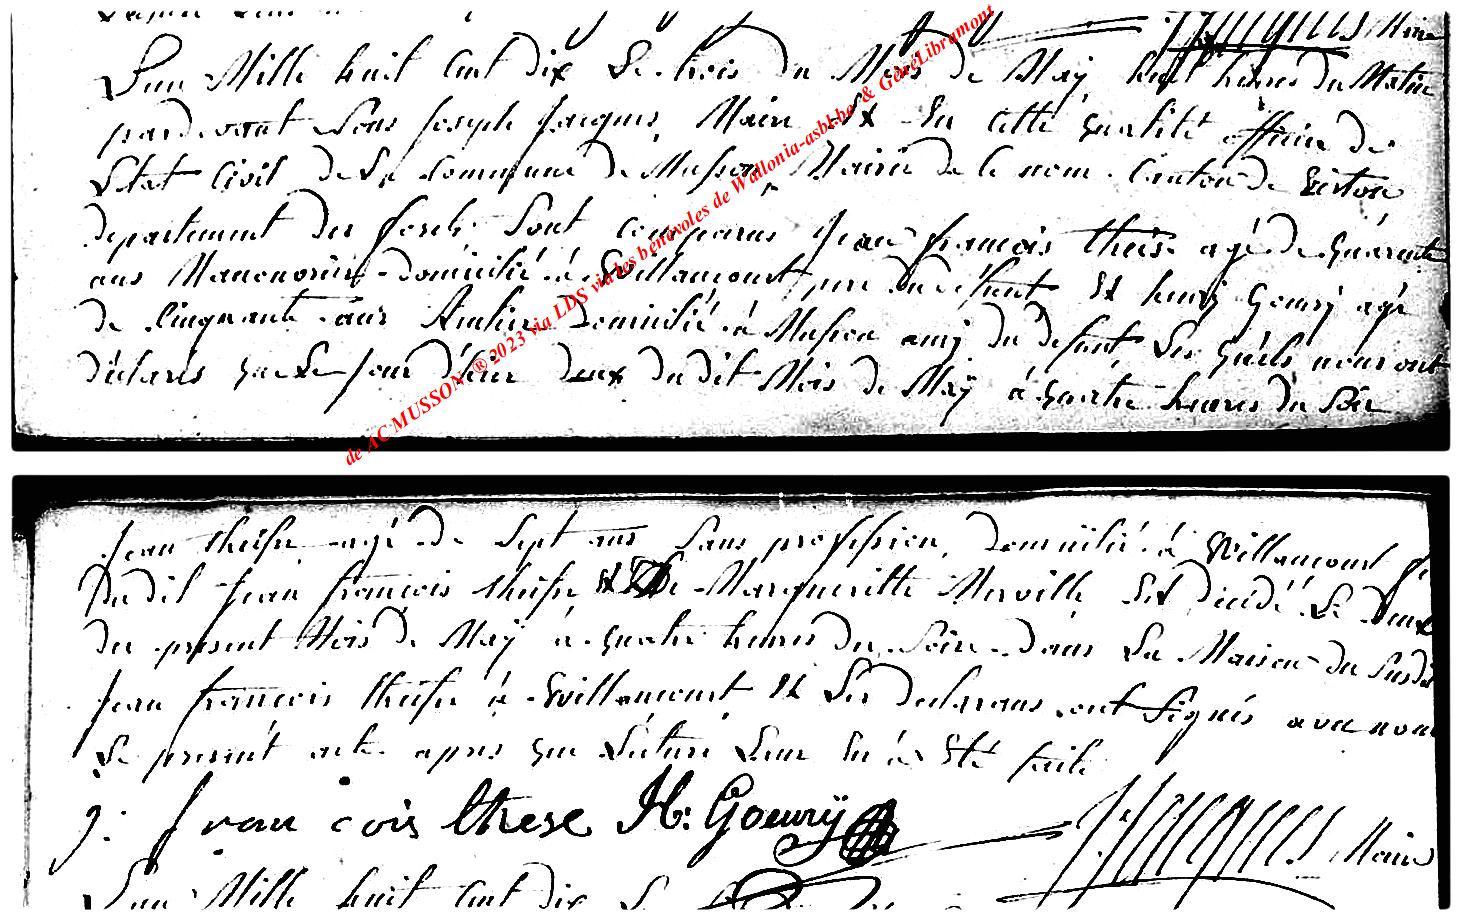 L'an Mille huit Cent dix Le trois du Mois de Maÿ, huit heures du Matin
pardevant Nous Joseph Jacques, Maire Et En Cette qualité officier de
L'Etat Civil de La Commune de Musson, Mairie de Ce nom. Canton de Virton
departement des forets Sont Comparus Jean françois theise agé de quarente
ans Manouvrier domicilié à Willancourt pere du défunt Et henrÿ Gourÿ agé
de Cinquante ans domicilié à Musson amÿ du defunt Les quels nous ont
déclarés que Le jour d'hier deux du dit Mois de Maÿ à quatre heures du Soir
Jean theisse agé de Sept ans Sans profession, domicilié à Willancourt
du dit Jean françois theisse Et de Margueritte Merville Est décédé Le deux
du présent Mois de Maÿ à quatre heures du Soir dans La Maison du Susdit
Jean françois theisse à Willancourt Et Les declarans ont Signés avec nous
Le present acte apres que Lecture Leur En à Eté faite
j: fran cois these H: Goeurÿ J Jacques Maire
L'an Mille huit Cent dix
de AC MUSSON ® 2023 via LDS via les bénévoles de Wallonia-asbl.be & GénéLibramont